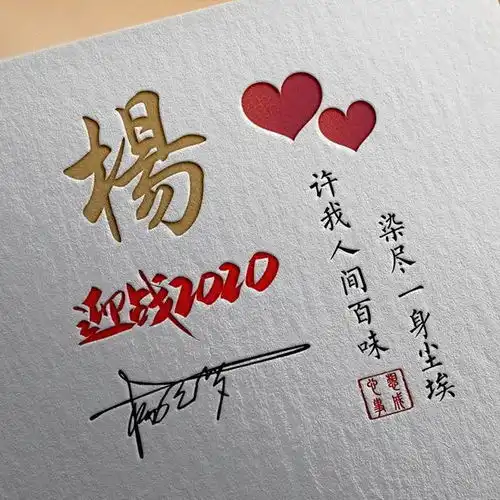 楊
迎战2020
许我人间百味
染尽一身尘埃
心想事成